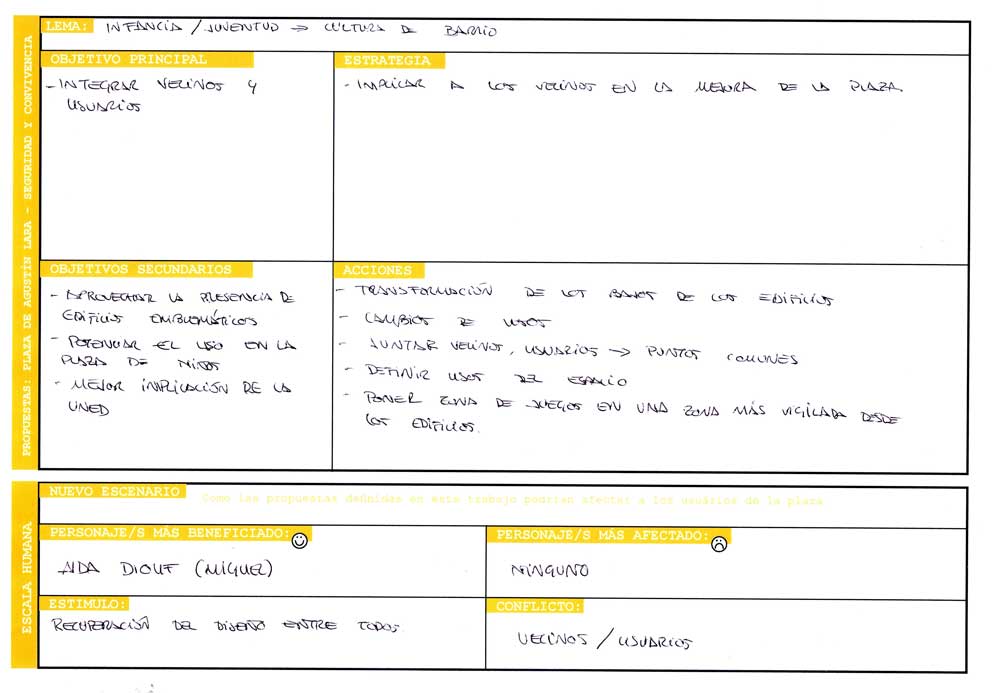 PROPUESTAS: PLAZA DE AGUSTÍN LARA - SEGURIDAD Y CONVIVENCIA
LEMA: INFANCIA / JUVENTUD => CULTURA DE BARRIO
OBJETIVO PRINCIPAL
- INTEGRAR VECINOS Y
USUARIOS
ESTRATEGIA
- IMPLICAR A LOS VECINOS EN LA MEJORA DE LA PLAZA.
OBJETIVOS SECUNDARIOS
- APROVECHAR LA PRESENCIA DE
EDIFICIOS EMBLEMÁTICOS
- POTENCIAR EL USO EN LA
PLAZA DE NIÑOS
- MEJOR IMPLICACIÓN DE LA
UNED
ACCIONES
- TRANSFORMACIÓN DE LOS BAJOS DE LOS EDIFICIOS
- CAMBIOS DE USOS
- JUNTAR VECINOS, USUARIOS -> PUNTOS COMUNES
- DEFINIR USOS DEL ESPACIO
- PONER ZONA DE JUEGOS EN UNA ZONA MÁS VIGILADA DESDE
LOS EDIFICIOS.
ESCALA HUMANA
NUEVO ESCENARIO Como las propuestas definidas en este trabajo podrían afectar a los usuários de la plaza
PERSONAJE/S MÁS BENEFICIADO:
AIDA DIOUF (MIGUEL)
PERSONAJE/S MÁS AFECTADO:
NINGUNO
ESTIMULO:
RECUPERACIÓN DEL DISEÑO ENTRE TODOS
CONFLICTO:
VECINOS / USUARIOS